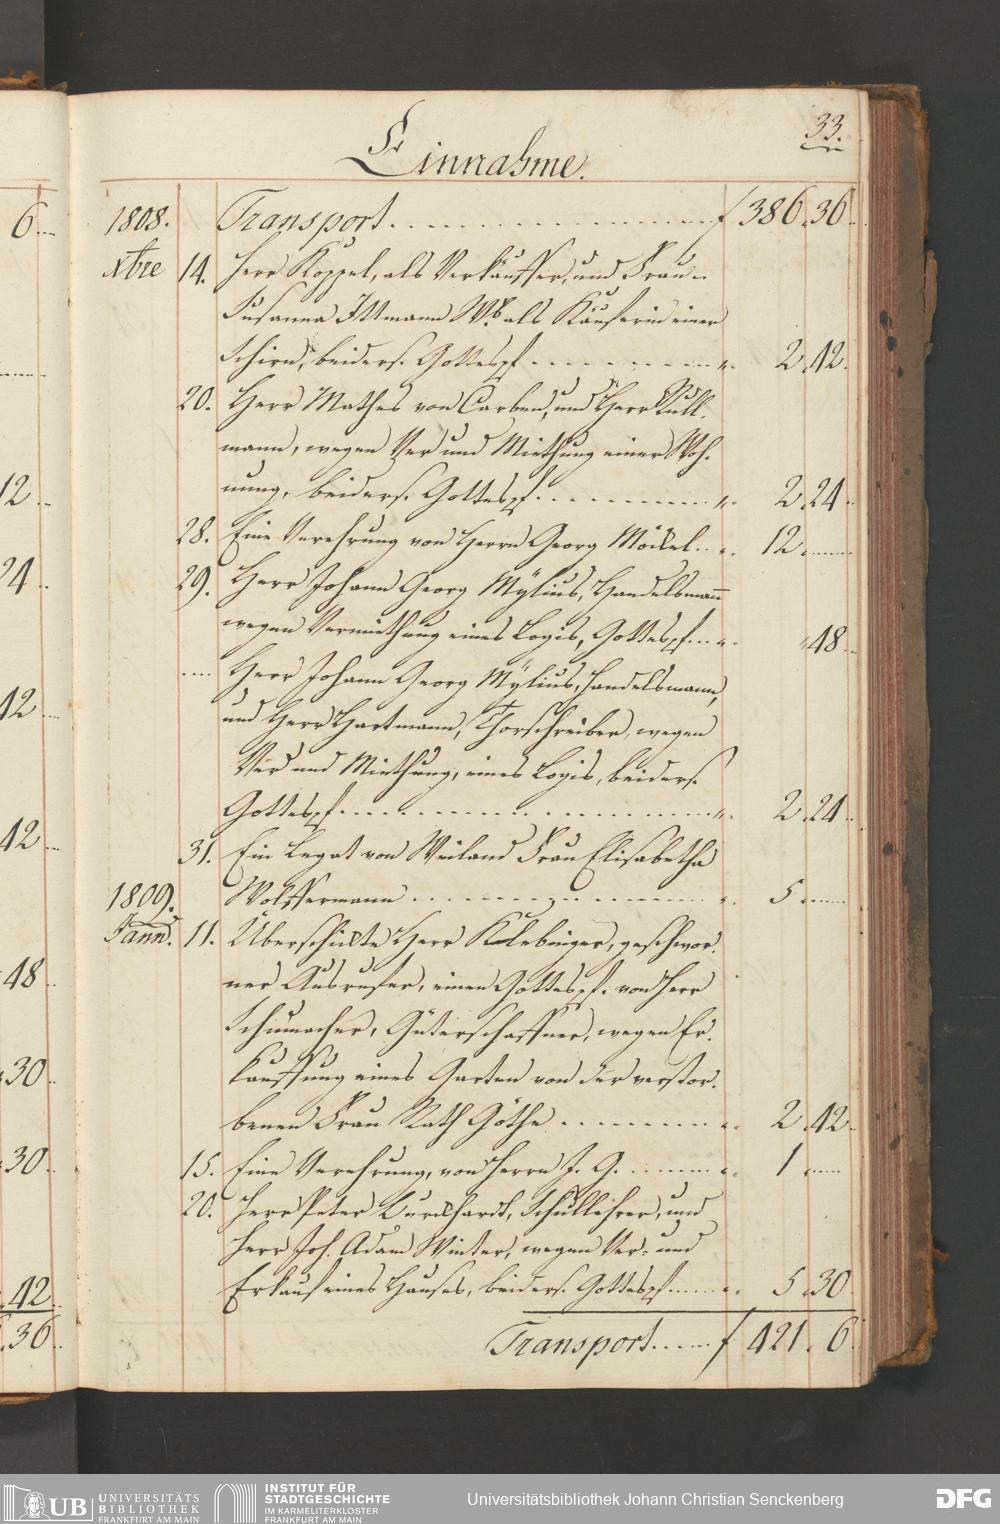 33.
Einnahme.
1808. Transport . . . f 386.36.
xbre 14. Herr Koppel, als Verkäuffer, und Frau
Susanna Ittmann Wb. als Käuferin einer
Schirn, beiders. Gottespf. . . . ". 2.42.
20. Herr Mathes von Carben, und Herr Kull-
mann, wegen Ver und Miethung einer Woh-
nung, beiders. Gottespf. . . . ". 2.24.
28. Eine Verehrung von Herrn Georg Möckel . . ". 12. . . .
29. Herr Johann Georg Mylius, Handelsmann
wegen Vermiethung eines Logis, Gottespf. . . ". " 48.
.... Herr Johann Georg Mylius, Handelsmann,
und Herr Hartmann, Thorschreiber, wegen
Ver und Miethung, eines Logis, beiders.
Gottespf. . . . ". 2.24.
31. Ein Legat von Weiland Frau Elisabetha
1809. Wolffermann . . . ". 5. . . .
Jann. 11. Überschickte Herr Klebinger, geschwor-
ner Ausrufer, einen Gottespf. von Herr
Schumacher, Güterschaffner, wegen Er-
kauffung eines Garten von der verstor-
benen Frau Rath Göthe . . . ". 2.42.
15. Eine Verehrung, von Herrn J. G. . . . ". 1. . . .
20. Herr Peter Burckhardt, Schullehrer, und
Herr Joh. Adam Winter, wegen Ver- und
Erkauf eines Hauses, beiders. Gottespf. . . . ". 5.30.
Transport . . . f 421. 6.
6
12
24
42
42
48
30
30
42
36
UB UNIVERSITÄTS
BIBLIOTHEK
FRANKFURT AM MAIN
INSTITUT FÜR
STADTGESCHICHTE
IM KARMELITERKLOSTER
FRANKFURT AM MAIN
Universitätsbibliothek Johann Christian Senckenberg
DFG